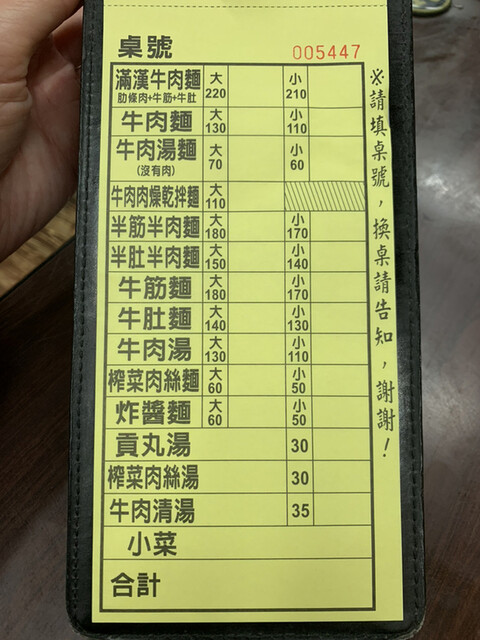 桌號 005447
滿漢牛肉麵 大 小
肋條肉+牛筋+牛肚 220 210
牛肉麵 大 130 小 110
牛肉湯麵 大 小
(沒有肉) 70 60
牛肉肉燥乾拌麵 大 110
半筋半肉麵 大 180 小 170
半肚半肉麵 大 150 小 140
牛筋麵 大 180 小 170
牛肚麵 大 140 小 130
牛肉湯 大 130 小 110
榨菜肉絲麵 大 60 小 50
炸醬麵 大 60 小 50
貢丸湯 30
榨菜肉絲湯 30
牛肉清湯 35
小菜
合計
※請填桌號，換桌請告知，謝謝！